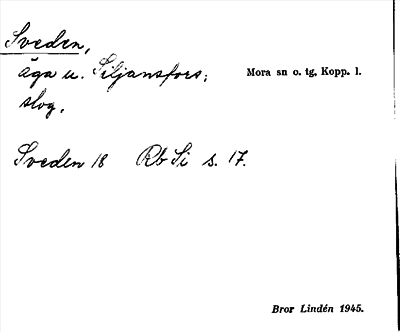 Sveden,
äga u. Siljansfors; Mora sn o. tg, Kopp. l.
slog.
Sveden 18 Rb Si s. 17.
Bror Lindén 1945.